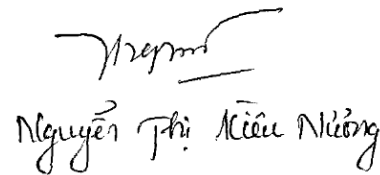 Nguyễn Thị Kiều Nương